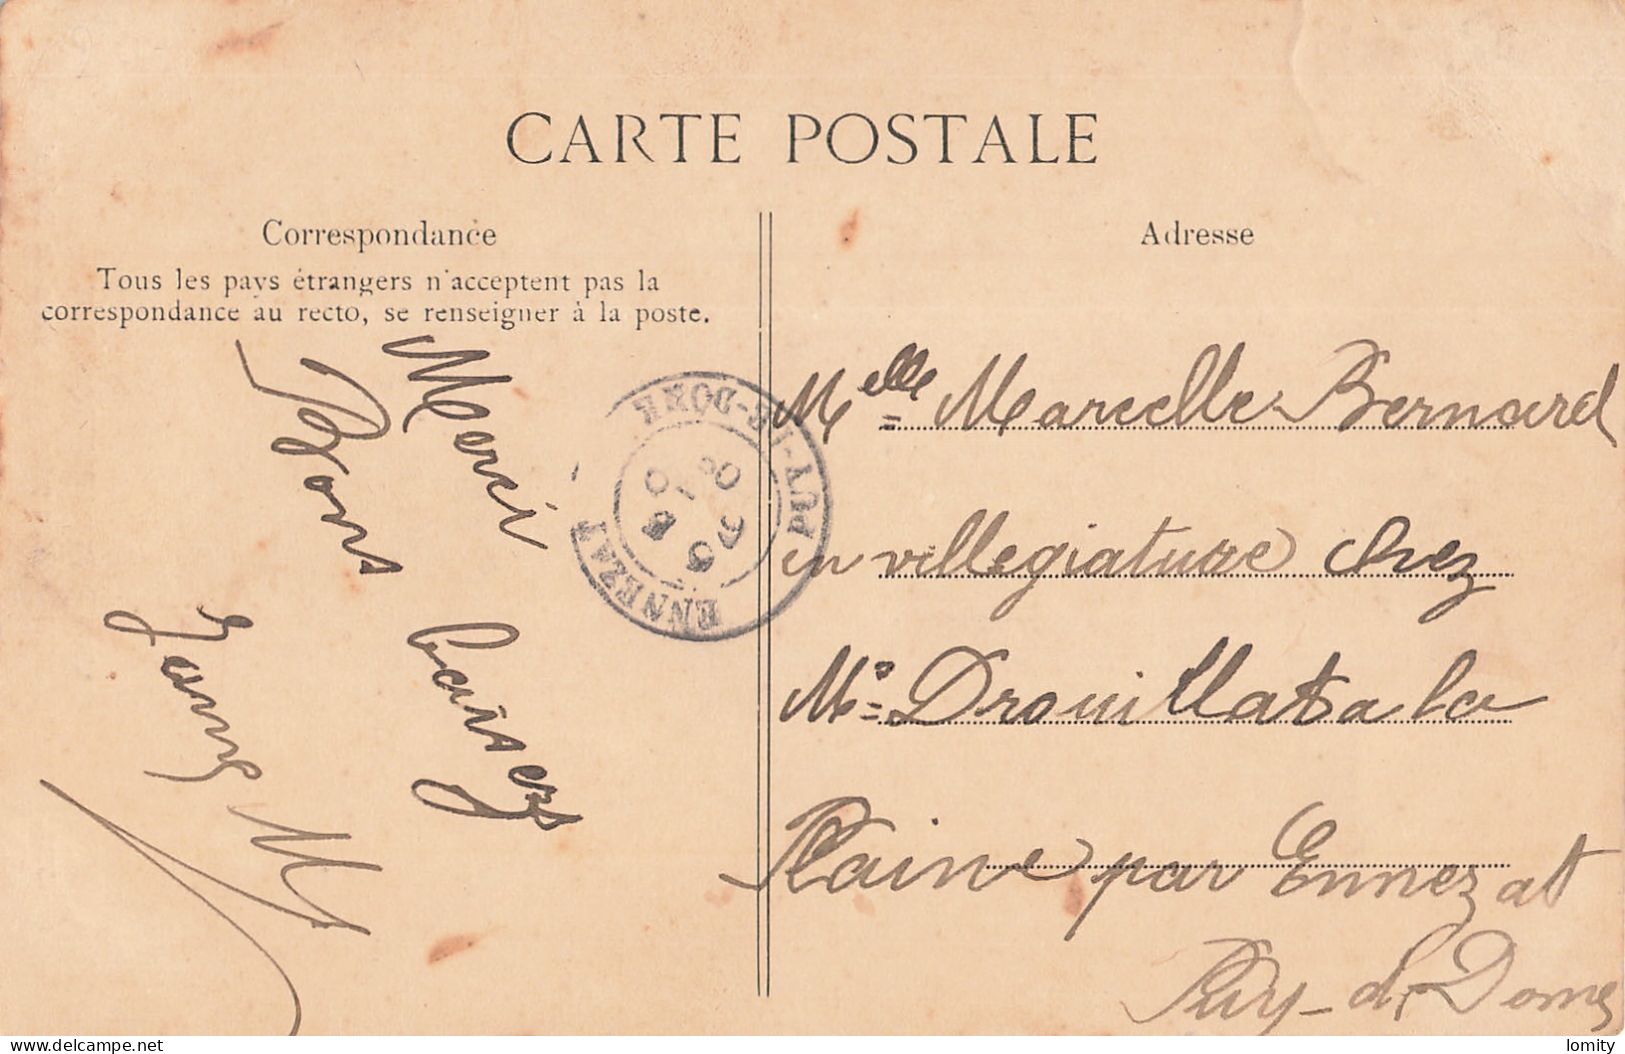 CARTE POSTALE
Correspondance
Tous les pays étrangers n'acceptent pas la
correspondance au recto, se renseigner à la poste.
Merci
Bons baisers
Jeanne M
ENNEZAT
PUY-DE-DOME
Adresse
Melle Marcelle Bernard
en villegiature chez
Mr Drouillat a la
Plaine par Ennezat
Puy-de-Dome
http://www.delcampe.net
lomity